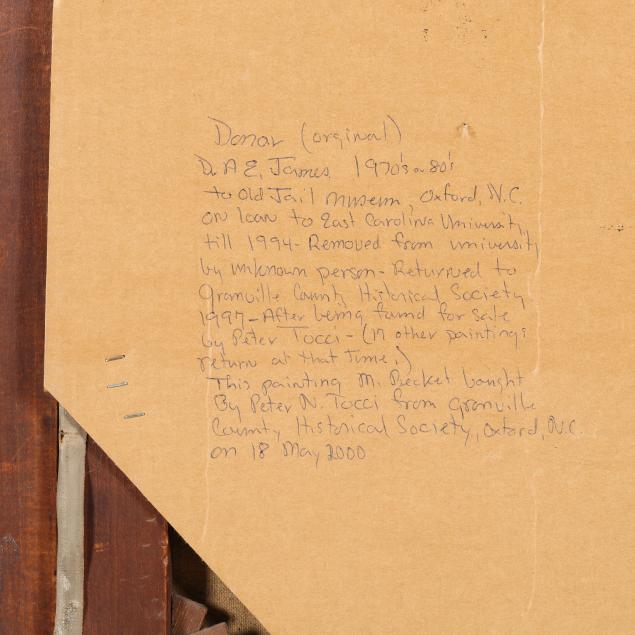 Donar (orginal)
D. A E. James 1970's or 80's
to Old Jail Museum, Oxford, N.C.
on loan to East Carolina University
till 1994 - Removed from university
by unknown person - Returned to
Granville County Historical Society
1997 - After being found for sale
by Peter Tocci - (17 other paintings
return at that time.)
This painting M. Becket bought
By Peter N. Tocci from Granville
County Historical Society, Oxford, N.C.
on 18 May 2000